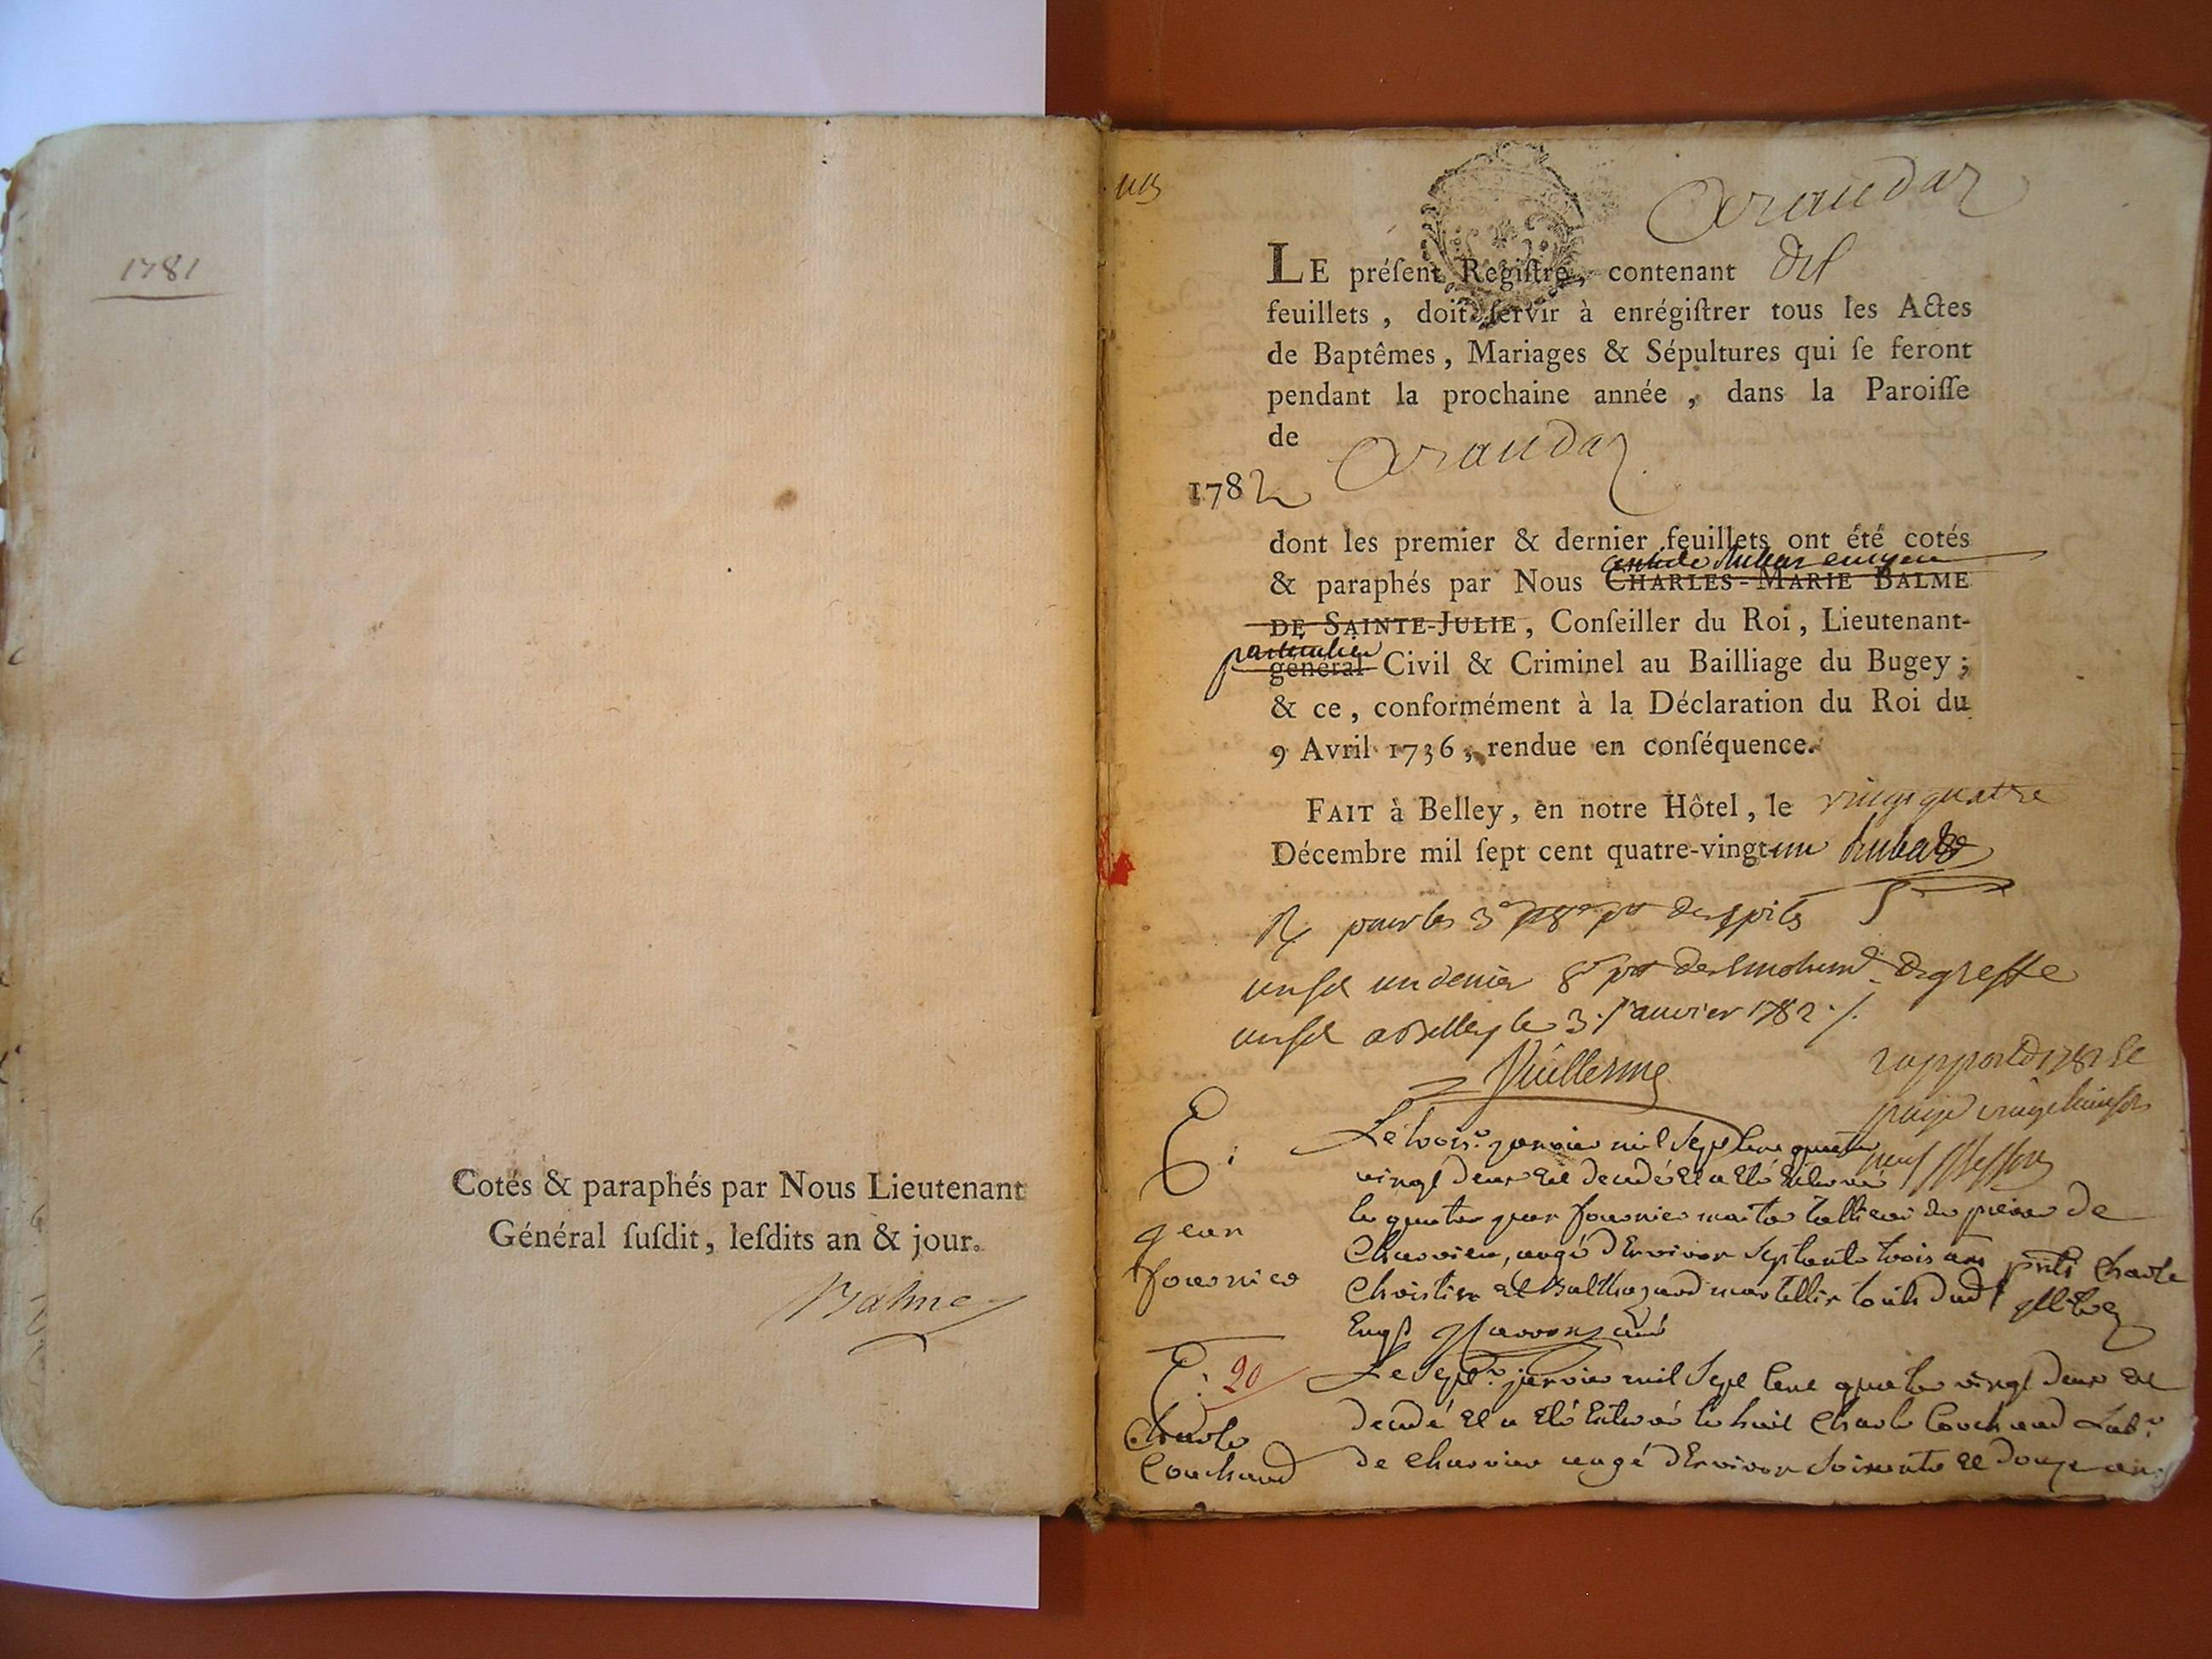 1781
Cotés & paraphés par Nous Lieutenant
Général ſuſdit, leſdits an & jour.
Balme
Arandaz
LE préſent Regiſtre, contenant dix
feuillets, doit ſervir à enrégiſtrer tous les Actes
de Baptêmes, Mariages & Sépultures qui ſe feront
pendant la prochaine année, dans la Paroiſſe
de Arandaz
1782
dont les premier & dernier feuillets ont été cotés
& paraphés par Nous CHARLES-MARIE BALME
DE SAINTE-JULIE, Conſeiller du Roi, Lieutenant-
particulier
général Civil & Criminel au Bailliage du Bugey;
& ce, conformément à la Déclaration du Roi du
9 Avril 1736, rendue en conſéquence.
FAIT à Belley, en notre Hôtel, le vingt quatre
Décembre mil ſept cent quatre-vingt-un
pour les 3
un sol un denier 8 de greffe
un sol a Belley le 3 Janvier 1782
Vuillerme
Le trois janvier mil sept cent quatre
vingt deux est decedé et a eté enterré
le quatre jean fournier de
jean
fournier
Charvieu, aagé d'environ septante trois ans Charle
Christin et Balthazard martellin
Le sept janvier mil sept cent quatre vingt deux est
20
decedé et a eté enterré le huit Charle Couchaud Lab.r
Charle
Couchaud
de charvieu aagé d'environ soixante et douze ans